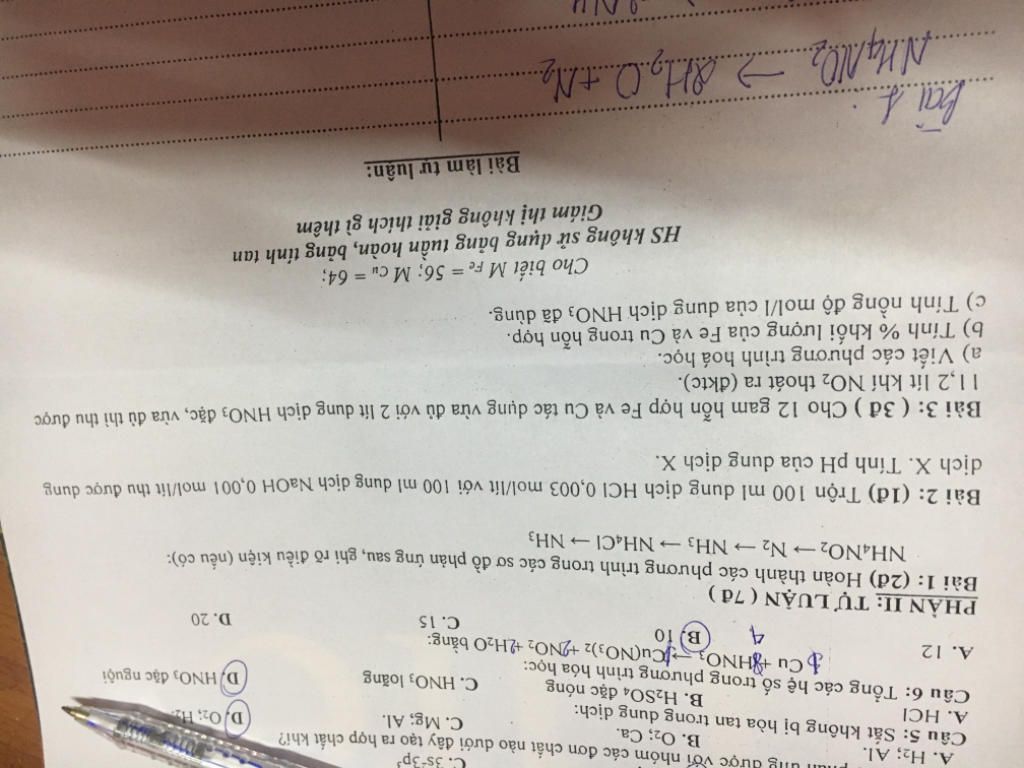 C. 3s²3p³
ứng được với nhóm các đơn chất nào dưới đây tạo ra hợp chất khí?
A. H₂; Al. B. O₂; Ca. C. Mg; Al. D. O₂; H₂.
Câu 5: Sắt không bị hòa tan trong dung dịch:
A. HCl B. H₂SO₄ đặc nóng C. HNO₃ loãng D. HNO₃ đặc nguội
Câu 6: Tổng các hệ số trong phương trình hóa học:
Cu + HNO₃ → Cu(NO₃)₂ + NO₂ + H₂O bằng:
A. 12 B. 10 C. 15 D. 20
4
PHẦN II: TỰ LUẬN ( 7đ )
Bài 1: (2đ) Hoàn thành các phương trình trong các sơ đồ phản ứng sau, ghi rõ điều kiện (nếu có):
NH₄NO₂ → N₂ → NH₃ → NH₄Cl → NH₃
Bài 2: (1đ) Trộn 100 ml dung dịch HCl 0,003 mol/lít với 100 ml dung dịch NaOH 0,001 mol/lít thu được dung
dịch X. Tính pH của dung dịch X.
Bài 3: ( 3đ ) Cho 12 gam hỗn hợp Fe và Cu tác dụng vừa đủ với 2 lít dung dịch HNO₃ đặc, vừa đủ thì thu được
11,2 lít khí NO₂ thoát ra (đktc).
a) Viết các phương trình hoá học.
b) Tính % khối lượng của Fe và Cu trong hỗn hợp.
c) Tính nồng độ mol/l của dung dịch HNO₃ đã dùng.
Cho biết M Fe = 56; M Cu = 64;
HS không sử dụng bảng tuần hoàn, bảng tính tan
Giám thị không giải thích gì thêm
Bài làm tự luận:
Bài 1:
NH₄NO₂ → 2H₂O + N₂